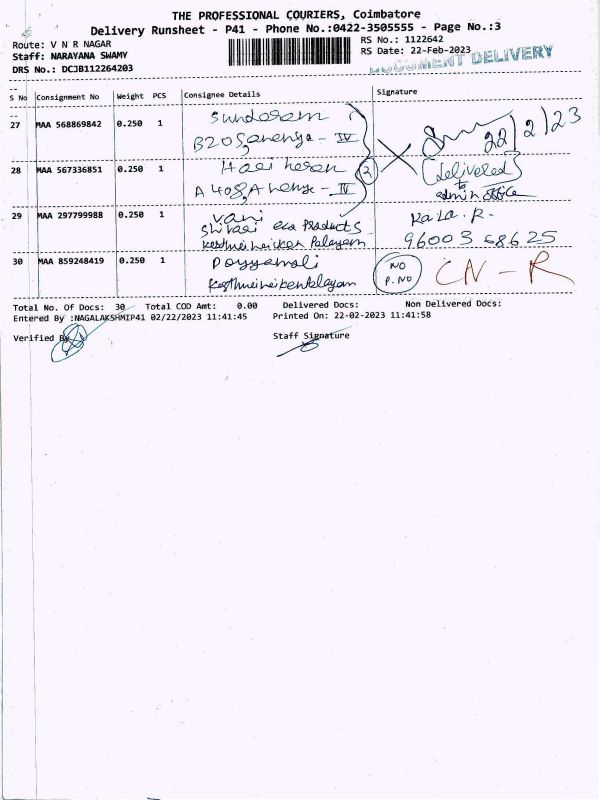 THE PROFESSIONAL COURIERS, Coimbatore
Delivery Runsheet - P41 - Phone No.:0422-3505555 - Page No.:3
Route: V N R NAGAR
RS No.: 1122642
Staff: NARAYANA SWAMY
RS Date: 22-Feb-2023
DRS No.: DCJB112264203
DOCUMENT DELIVERY
S No Consignment No Weight PCS Consignee Details Signature
27 MAA 568869842 0.250 1 Sundaram
B205, - IV
22/2/23
28 MAA 567336851 0.250 1
A 408, - IV
(2)
(delivered)
to
admin office
29 MAA 297799988 0.250 1 Vani
eco Products
Kala. R.
96003 68625
30 MAA 859248419 0.250 1
NO
P. NO
CN - R
Total No. Of Docs: 30 Total COD Amt: 0.00 Delivered Docs: Non Delivered Docs:
Entered By :NAGALAKSHMIP41 02/22/2023 11:41:45 Printed On: 22-02-2023 11:41:58
Verified By
Staff Signature